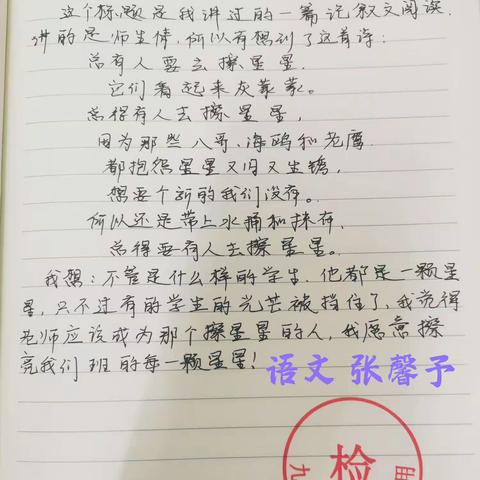 这个标题是我讲过的一篇记叙文阅读，
讲的是师生情，所以有想到了这首诗：
总有人要去擦星星，
它们看起来灰蒙蒙。
总得有人去擦星星，
因为那些八哥、海鸥和老鹰
都抱怨星星又旧又生锈，
想要个新的我们没有。
所以还是带上水桶和抹布，
总得要有人去擦星星。
我想：不管是什么样的学生，他都是一颗星
星，只不过有的学生的光芒被挡住了，我觉得
老师应该成为那个擦星星的人，我愿意擦
亮我们班的每一颗星星！
语文 张馨予
检
九